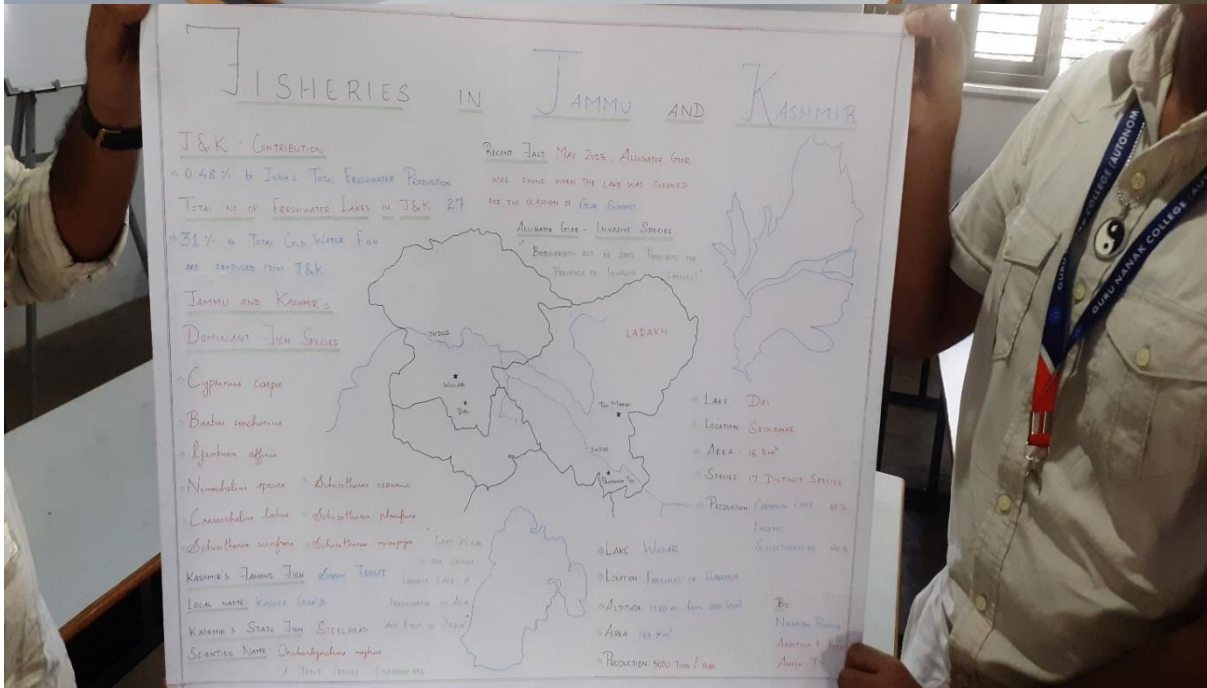 FISHERIES IN JAMMU AND KASHMIR
J&K CONTRIBUTION
0.48% to INDIA'S TOTAL FRESHWATER PRODUCTION
TOTAL NO OF FRESHWATER LAKES IN J&K 27
31% TOTAL COLD WATER FISH
ARE PRODUCED FROM J&K
JAMMU AND KASHMIR'S
DOMINANT FISH SPECIES
Cyprinus carpio
Barbus conchonius
Gambusia affinis
Nemacheilus species
Crossocheilus
Schizothorax
Schizothorax
Schizothorax
Schizothorax
KASHMIR'S FAMOUS FISH
LOCAL NAME: KASHIR GAAD
KASHMIR'S STATE FISH STEELHEAD
SCIENTIFIC NAME: Oncorhynchus mykiss
RECENT FACT: MAY 2023, ALLIGATOR GAR
WAS FOUND WHEN THE LAKE WAS CLEANED
FOR THE OCCASION OF G20 SUMMIT
ALLIGATOR GAR - INVASIVE SPECIES
BIODIVERSITY ACT OF 2002 PROHIBITS THE
PRESENCE OF INVASIVE
INDUS
WULAR
DAL
LADAKH
TSO MORIRI
INDUS
PANGONG TSO
LAKE WULAR
IS THE
LARGEST LAKE OF
FRESHWATER IN ASIA
AND FIRST IN INDIA"
LAKE DAL
LOCATION SRINAGAR
AREA: 18 Km²
SPECIES: 17 DISTINCT SPECIES
PRODUCTION COMMON CARP
LAKE WULAR
LOCATION:
ALTITUDE: 1580 m from sea level
AREA: 189 Km²
PRODUCTION: 5000 TONS / YEAR
By
GURU NANAK COLLEGE (AUTONOM
GURU NANAK COLLEGE (AU